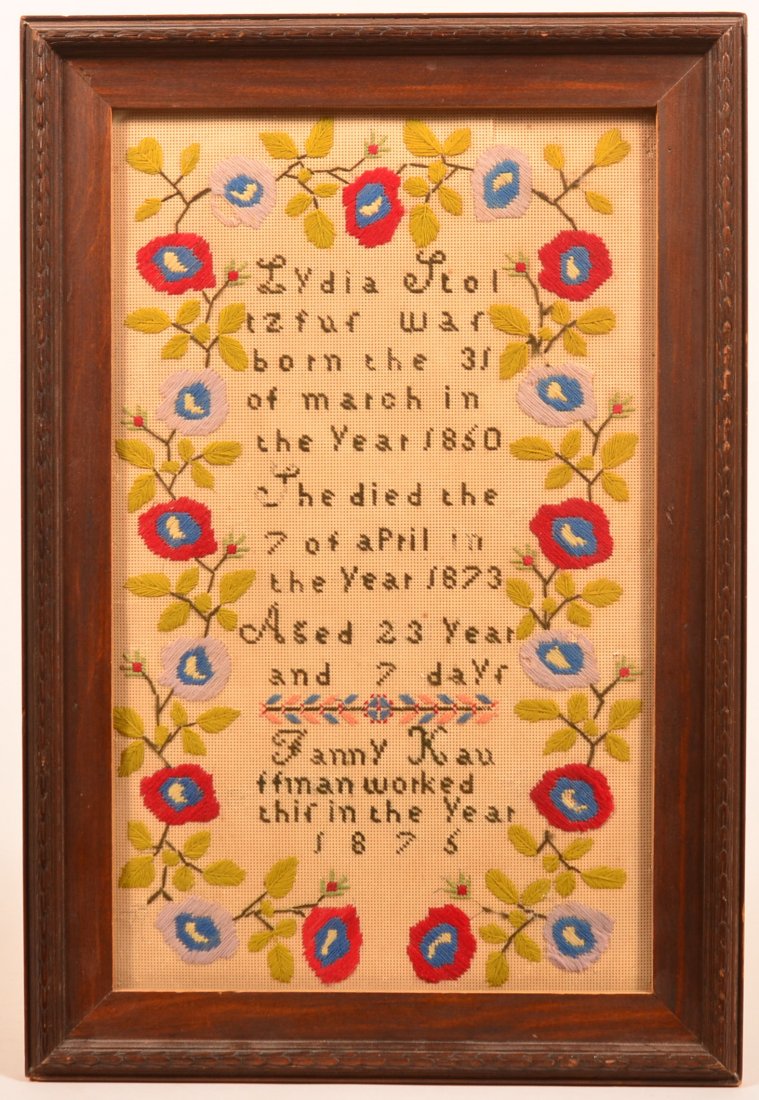 Lydia Stol
tzfus was
born the 31
of march in
the Year 1850
She died the
7 of aPril in
the Year 1873
Aged 23 Year
and 7 days
Fanny Kau
ffman worked
this in the Year
1 8 7 5